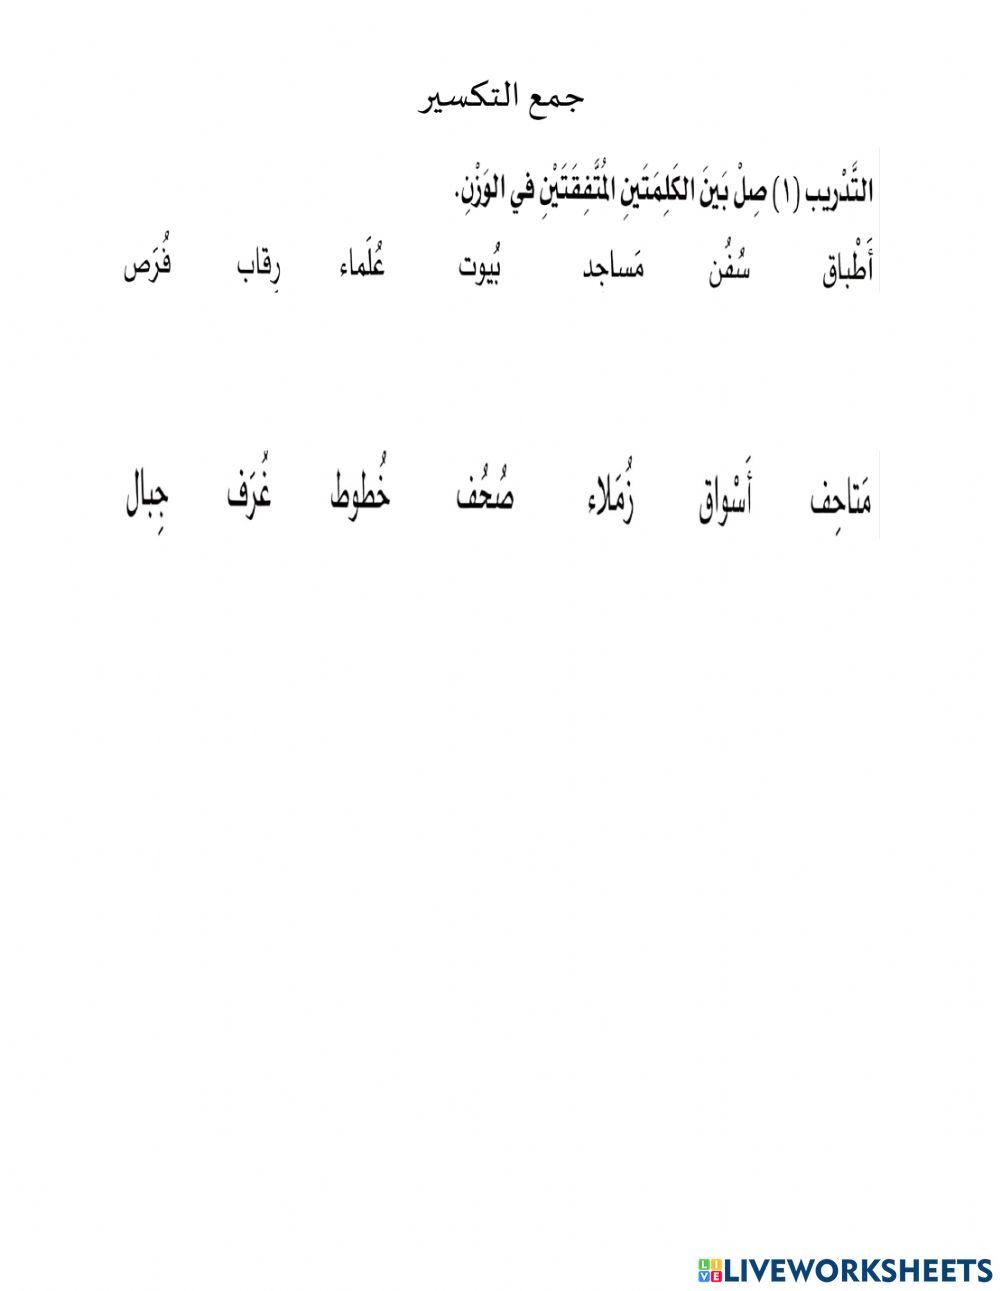 جمع التكسير
التَّدْريب (١) صِلْ بَينَ الكَلِمَتَينِ المُتَّفِقَتَيْنِ في الوَزْنِ.
أَطْباق سُفُن مَساجد بُيوت عُلَماء رِقاب فُرَص
مَتاحِف أَسْواق زُمَلاء صُحُف خُطوط غُرَف جِبال
LIVE LIVEWORKSHEETS